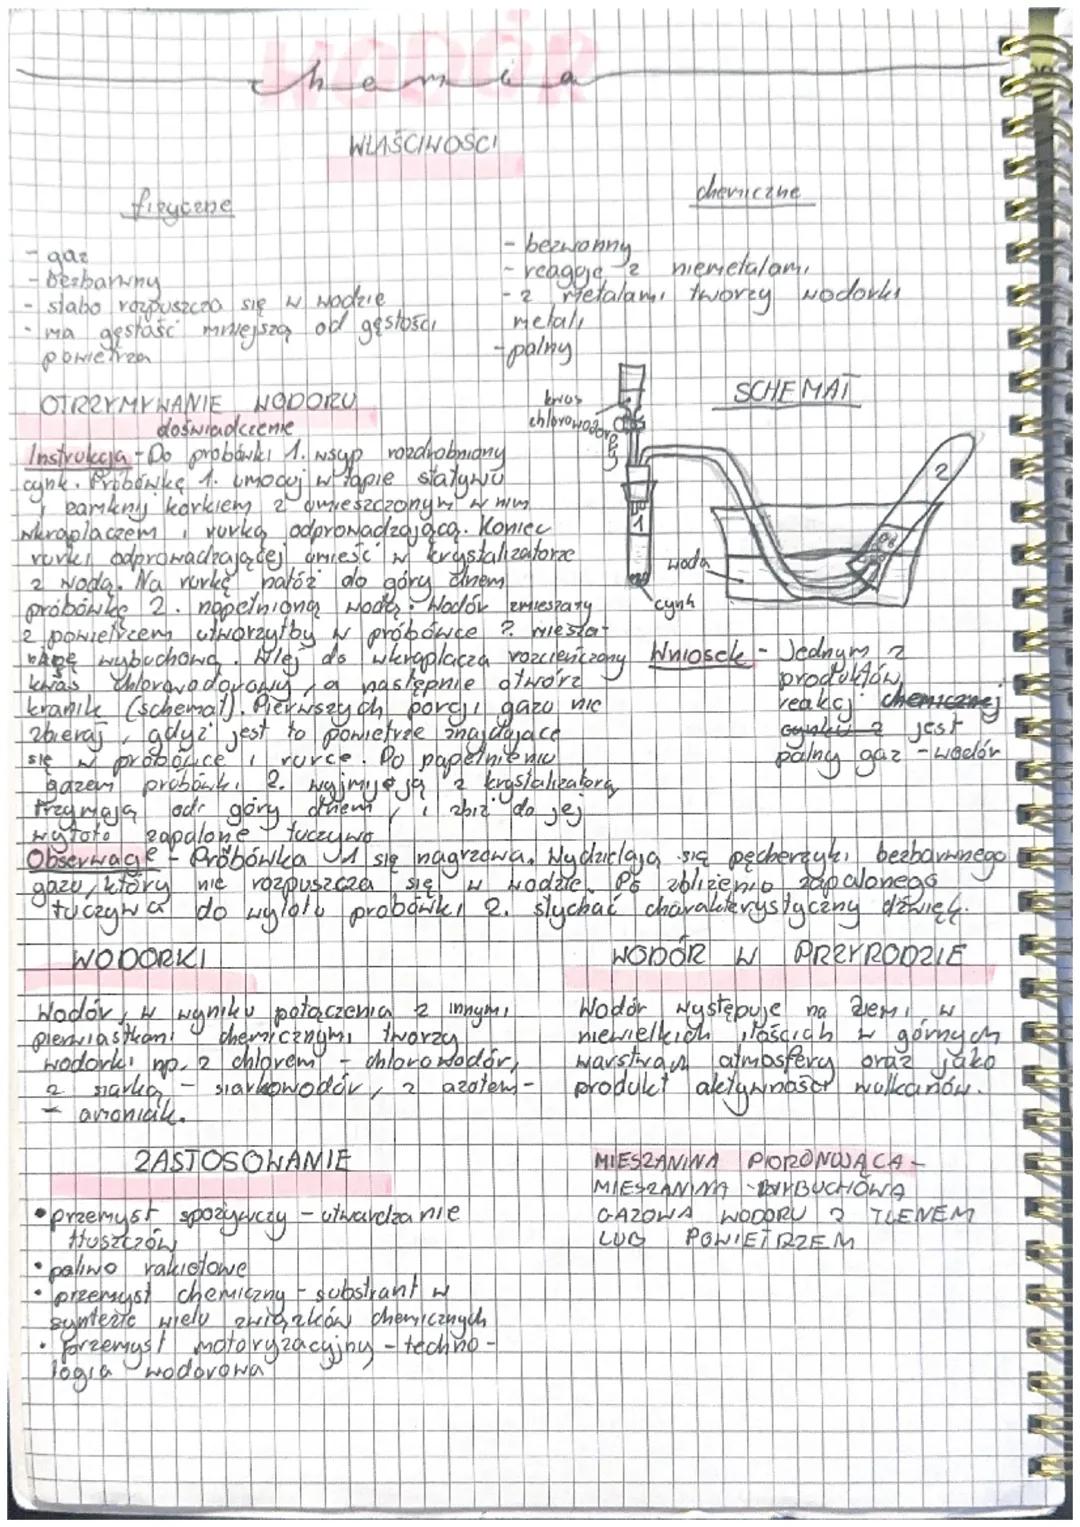 WODÓR
chemia
WŁAŚCIWOŚCI
fizyczne
- gaz
- bezbarwny
- słabo rozpuszcza się w wodzie
- ma gęstość mniejszą od gęstości
powietrza
chemiczne
- bezwonny
- reaguje z niemetalami
- z metalami tworzy wodorki
metali
- palny
OTRZYMYWANIE WODORU
doświadczenie
Instrukcja - Do probówki 1. wsyp rozdrobniony
cynk. Probówkę 1. umocuj w łapie statywu
i zamknij korkiem z umieszczonym w nim
wkraplaczem i rurką odprowadzającą. Koniec
rurki odprowadzającej umieść w krystalizatorze
z wodą. Na rurkę nałóż do góry dnem
probówkę 2. napełnioną wodą. Wodór zmieszany
z powietrzem utworzyłby w probówce 2. miesza-
ninę wybuchową. Wlej do wkraplacza rozcieńczony
kwas chlorowodorowy, a następnie otwórz
kranik (schemat). Pierwszych porcji gazu nie
zbieraj, gdyż jest to powietrze znajdujące
się w probówce i rurce. Po napełnieniu
gazem probówki 2. wyjmij ją z krystalizatora
trzymając do góry dnem, i zbliż do jej
wylotu zapalone łuczywo
SCHEMAT
kwas
chlorowodorowy
1
2
woda
cynk
Wniosek - Jednym z
produktów
reakcji chemicznej
cynku z jest
palny gaz - wodór
Obserwacje - Probówka 1 się nagrzewa. Wydzielają się pęcherzyki bezbarwnego
gazu, który nie rozpuszcza się w wodzie. Po zbliżeniu zapalonego
łuczywa do wylotu probówki 2. słychać charakterystyczny dźwięk.
WODORKI
Wodór, w wyniku połączenia z innymi
pierwiastkami chemicznymi tworzy
wodorki np. z chlorem - chlorowodór,
z siarką - siarkowodór, z azotem -
- amoniak.
WODÓR W PRZYRODZIE
Wodór występuje na Ziemi w
niewielkich ilościach w górnych
warstwach atmosfery oraz jako
produkt aktywności wulkanów.
ZASTOSOWANIE
• przemysł spożywczy - utwardzanie
tłuszczów
• paliwo rakietowe
• przemysł chemiczny - substrant w
syntezie wielu związków chemicznych
• przemysł motoryzacyjny - techno-
logia wodorowa
MIESZANINA PIORONUJĄCA -
MIESZANINA WYBUCHOWA
GAZOWA WODORU Z TLENEM
LUB POWIETRZEM